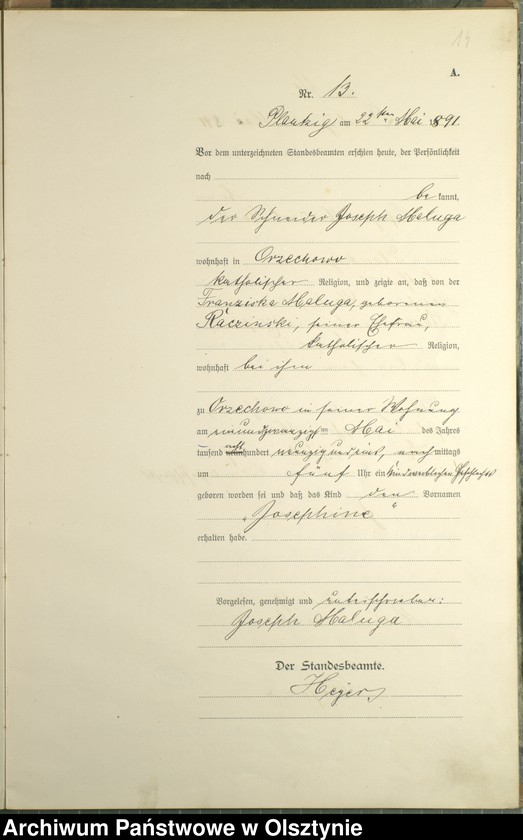 14
A.
Nr. 13.
Plautzig am 22ten Mai 1891.
Vor dem unterzeichneten Standesbeamten erschien heute, der Persönlichkeit
nach
be kannt,
der Schneider Joseph Maluga
wohnhaft in Orzechowo
katholischer Religion, und zeigte an, daß von der
Franziska Maluga, geborenen
Raczinski, seiner Ehefrau,
katholischer Religion,
wohnhaft bei ihm
zu Orzechowo in seiner Wohnung
am ten Mai des Jahres
tausend acht hundert neunzig und eins, nach mittags
um fünf Uhr ein Kind weiblichen Geschlechts
geboren worden sei und daß das Kind den Vornamen
„Josephine“
erhalten habe.
Vorgelesen, genehmigt und unterschrieben:
Joseph Maluga
Der Standesbeamte.
Archiwum Państwowe w Olsztynie